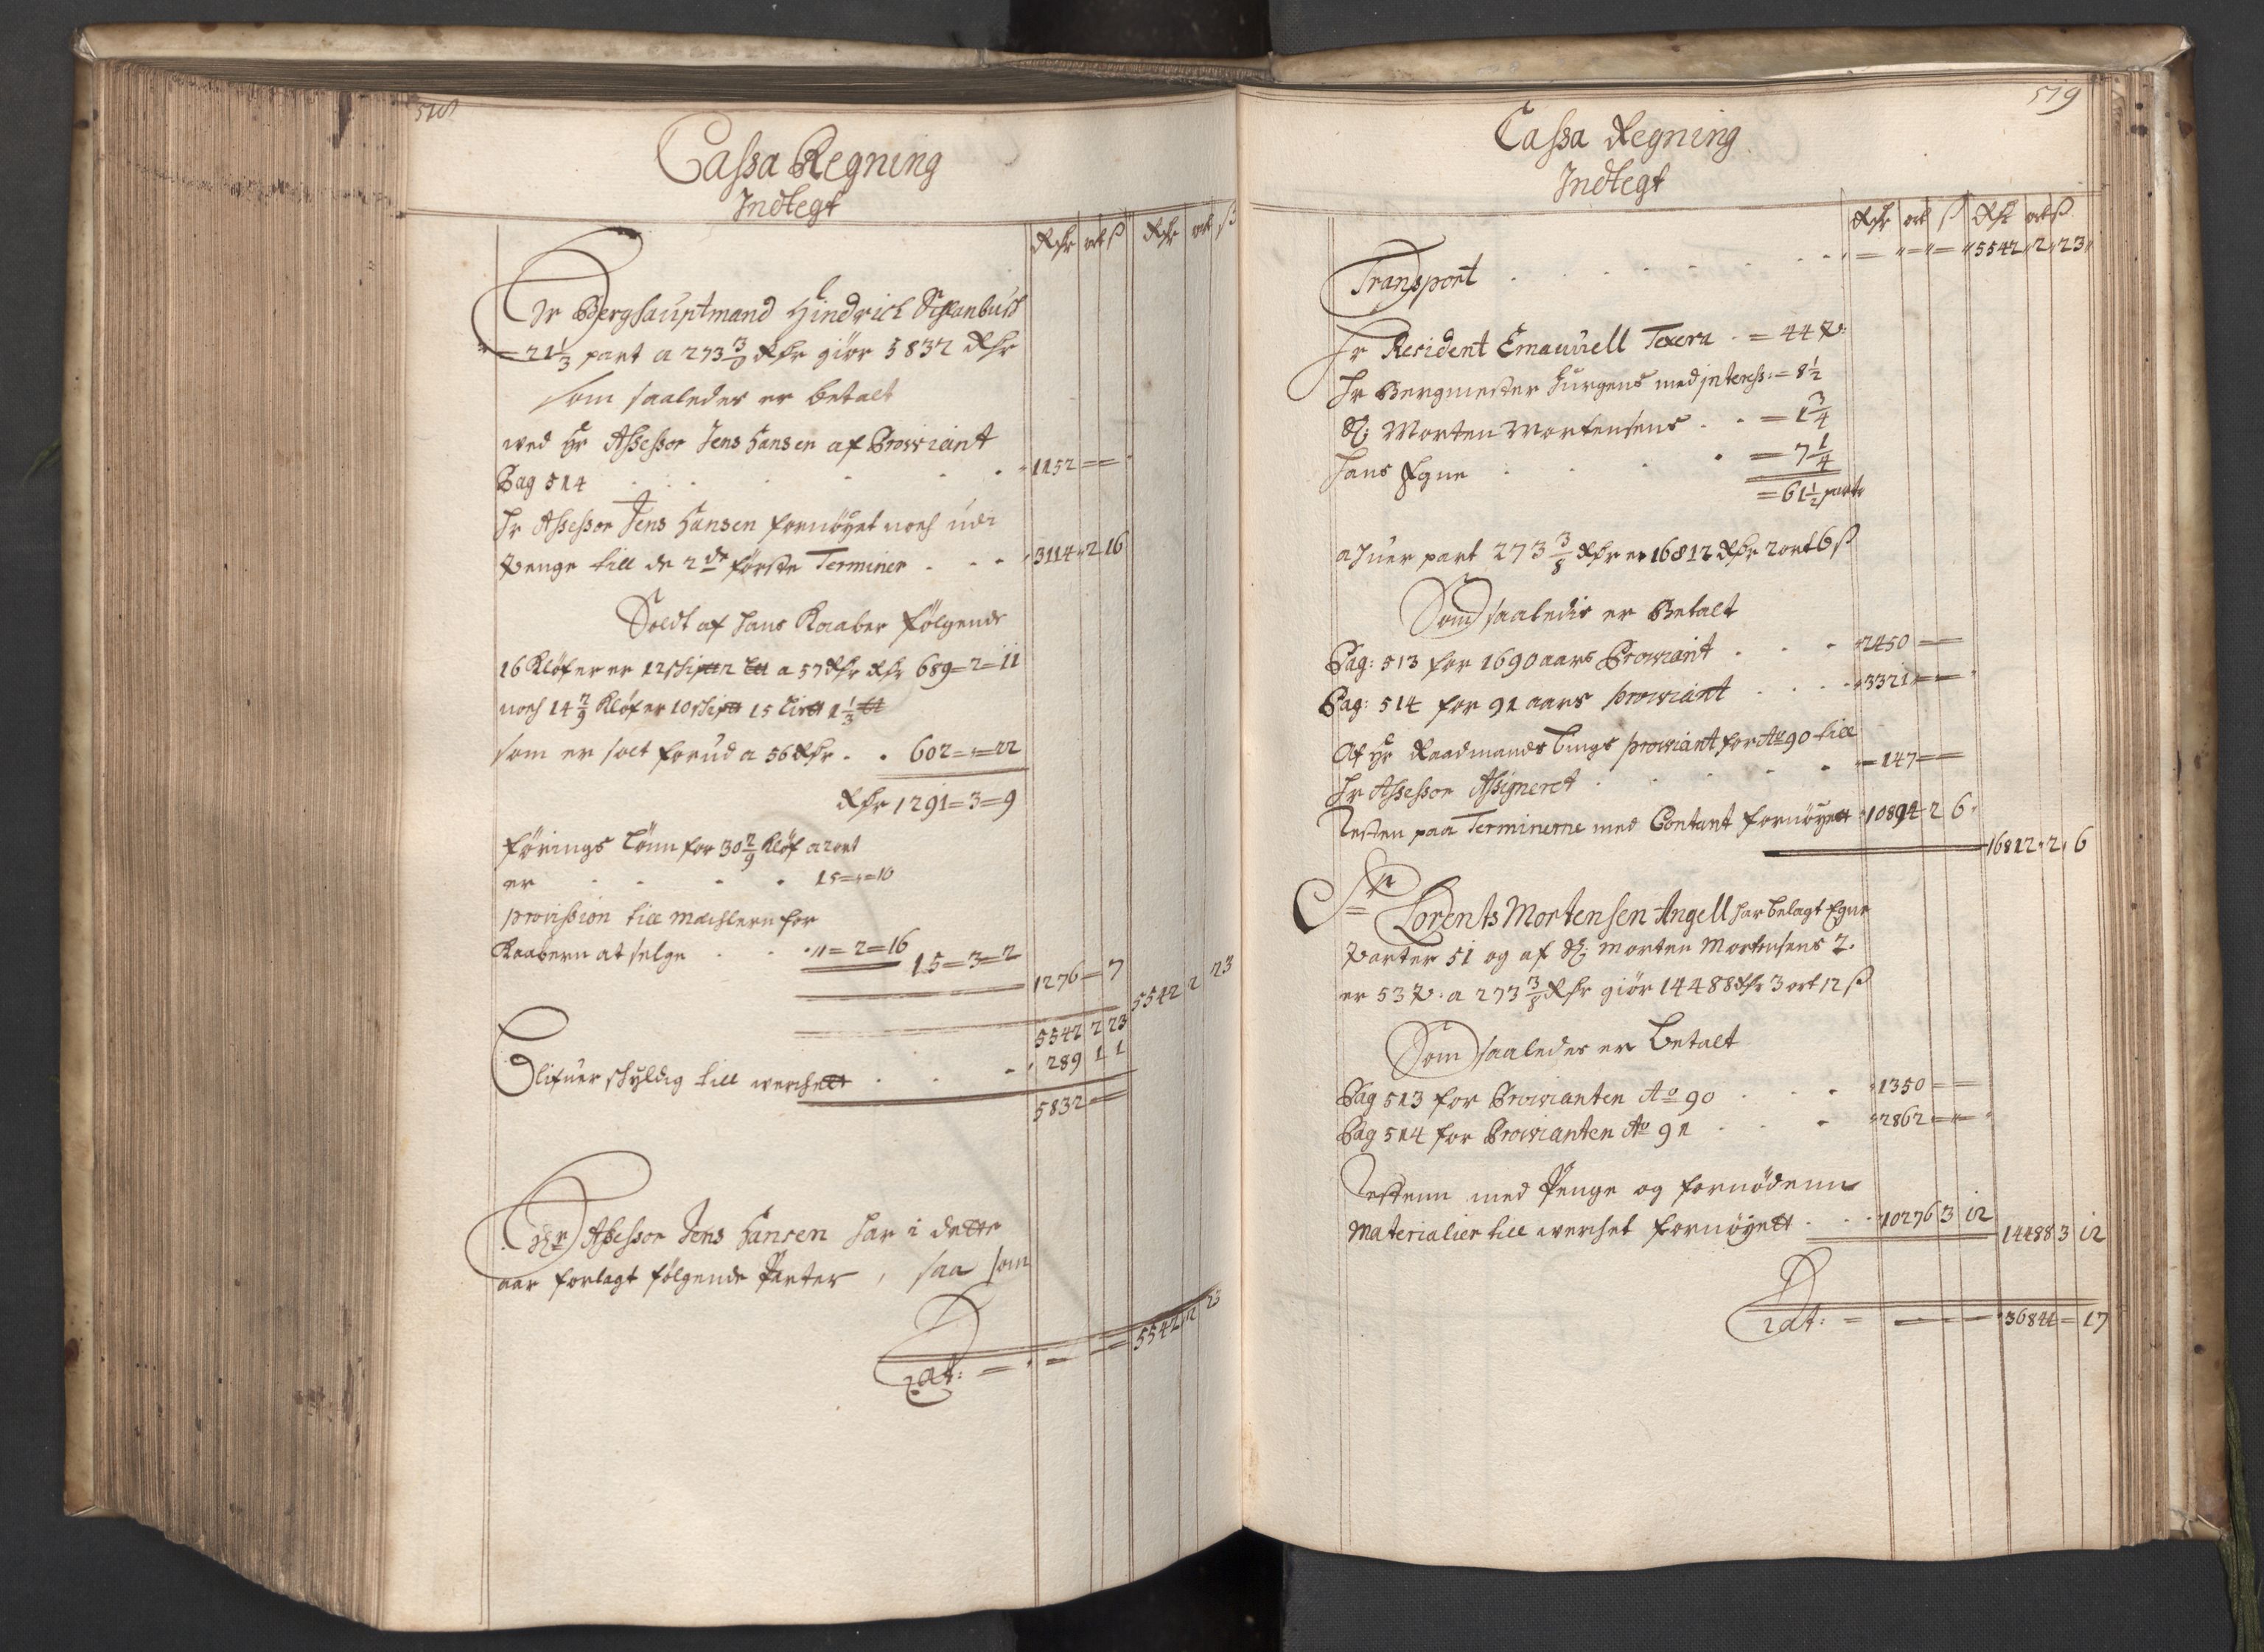 518
Cassa Regning
Indtegt
Rdr ort ß Rdr ort ß
Hr Berghauptmand Hindrich Schlanbusch
= 21 1/3 part a 273 3/8 Rdr giör 5832 Rdr
som saaledes er betalt
wed Hr Assessor Jens Hansen af Prowiant
Pag 514 . . . . . 1152 = =
Hr Assessor Jens Hansen fornöyet noch udi
Penge till de 2de förste Terminer . . . 3114 = 2 16
Soldt af hans Kaaber fölgende
16 Klöfer er 12 Schip tt 2 Ltt a 57 Rdr Rdr 689 = 2 = 11
noch 14 2/9 Klöfer 10 Schiptt 15 Litt 1 1/3 tt
som er solt forud a 56 Rdr . . 602 = „ = 22
Rdr 1291 = 3 = 9
förings Lönn for 30 2/9 Klöf a 2 ort
er . . . . 15 = „ = 10
provission till Mæchlern for
Kaabern at selge . . „ = 2 = 16 15 = 3 = 2
1276 = 7 5542 2 23
5542 2 23
Blifuer schyldig till werchett . . . 289 1 1
5832 = =
Hr Assessor Jens Hansen har i dette
aar forlagt fölgende Parter, saa som
Lat: = = = 5542 2 23
519
Cassa Regning
Indtegt
Rdr ort ß Rdr ort ß
Transport . . . . . . = „ = „ = „ 5542 „ 2 „ 23 „
Hr Resident Emanuell Texera . = 44 P:
Hr Bergmester Jurgens med interess: = 8 1/2
Sl: Morten Mortensens . . = 1 3/4
Hans Egne . . . . = 7 1/4
= 61 1/2 parter
a huer part 273 3/8 Rdr er 16812 Rdr 2 ort 6 ß
Som saaledis er Betalt
Pag: 513 for 1690 aars Prowiant . . . 2450 = =
Pag: 514 for 91 aars prowiant . . . 3321 = =
Af Hr Raadmands Lungs prowiant for Ao 90 till
Hr Assessor Assigneret . . . . = 147 = =
Resten paa Terminerne med Contant fornöyett 10894 2 6
16812 „ 2 „ 6
Sr
Lorents Mortensen Angell har belagt Egne
Parter 51 og af Sl: Morten Mortensens 2.
er 53 P: a 273 3/8 Rdr giör 14488 Rdr 3 ort 12 ß
Som saaledes er Betalt
Pag 513 for Prowianten Ao 90 . . . 1350 = =
Pag 514 for Prowianten Ao 91 . . . 2862 = =
Restenn med Penge og fornödenn
Materialier till werchet fornöyett . . . 10276 3 12 14488 3 12
Lat: = = = 36844 = 17